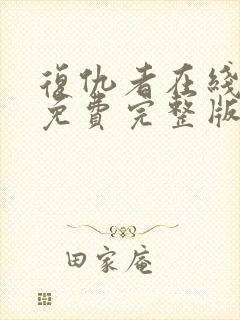 復仇者在綫
免費完整版
田家庵